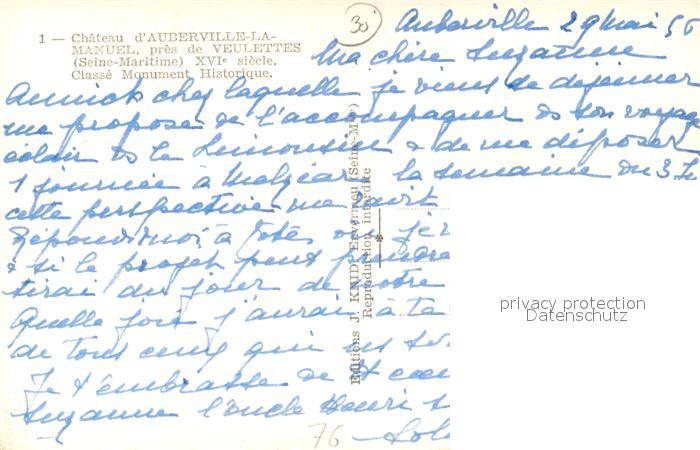 1 — Château d'AUBERVILLE-LA-
MANUEL, près de VEULETTES
(Seine-Maritime) XVIe siècle.
Classé Monument Historique.
30
Auberville 29 Mai 56
Ma chère Suzanne
Annick chez laquelle je viens de déjeuner
me propose de l'accompagner ds son voyage
éclair ds le Limousin & de me déposer
1 journée à la semaine du 3
cette perspective me ravit
Réponds moi à
& si le projet peut prendre
tirai du jour de notre
Quelle joie j'aurai à te
de tous ceux qui
Je t'embrasse de tt coeur
Suzanne l'oncle Henri
76
Editions J. KNID, Envermeu (Seine-Mar)
Reproduction interdite
privacy protection
Datenschutz